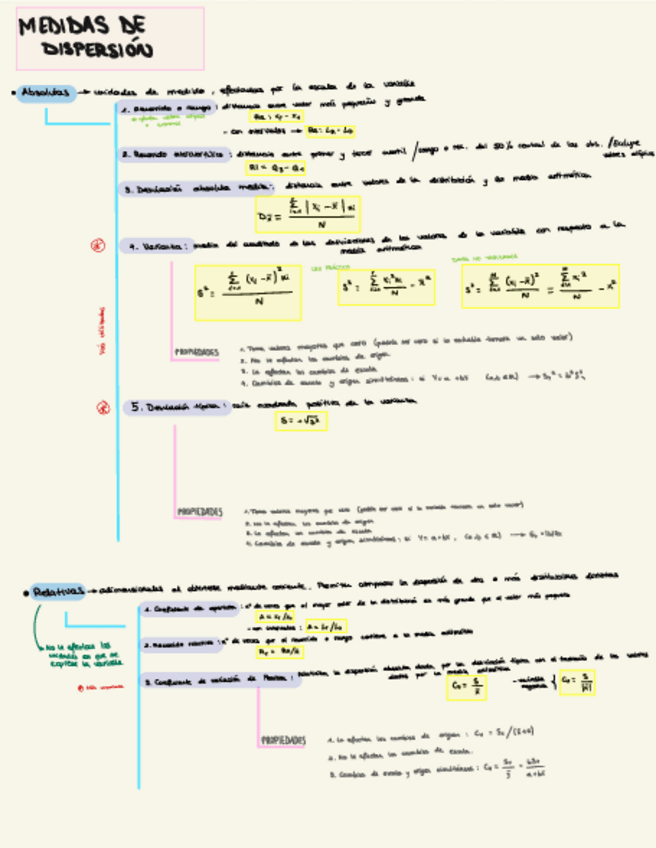 MEDIDAS DE
DISPERSIÓN
• Absolutas → unidades de medida, efectuadas por la escala de la variable
1. Recorrido o rango: distancia entre valor más pequeño y grande
Re = xr - x1
- con intervalos → Re = Lr - L0
2. Recorrido intercuartílico: distancia entre primer y tercer cuartil / rango o rec. del 50% central de las obs. / Excluye
valores atípicos
RI = Q3 - Q1
3. Desviación absoluta media: distancia entre valores de la distribución y la media aritmética
Dx̄ = Σ |xi - x̄| ni / N
4. Varianza: media del cuadrado de las desviaciones de los valores de la variable con respecto a la
media aritmética
S² = Σ (xi - x̄)² ni / N
S² = Σ xi² ni / N - x̄²
S² = Σ (xi - x̄)² / N = Σ xi² / N - x̄²
Más utilizadas
PROPIEDADES
1. Toma valores mayores que cero (podría ser cero si la variable tomara un solo valor)
2. No le afectan los cambios de origen
3. Le afectan los cambios de escala
4. Cambios de escala y origen simultáneos: si Y = a + bX (a, b ∈ R) →
5. Desviación típica: raíz cuadrada positiva de la varianza
S = +√S²
PROPIEDADES
1. Toma valores mayores que cero (podría ser cero si la variable tomara un solo valor)
2. No le afectan los cambios de origen
3. Le afectan los cambios de escala
4. Cambios de escala y origen simultáneos: si Y = a + bX, (a, b ∈ R) →
• Relativas → adimensionales al obtenerse mediante cociente. Permiten comparar la dispersión de dos o más distribuciones distintas
1. Coeficiente de apertura: nº de veces que el mayor valor de la distribución es más grande que el valor más pequeño
A = xr/x1
- con intervalos: A = Lr/L0
No le afectan las
unidades en que se
exprese la variable
2. Recorrido relativo: nº de veces que el recorrido o rango contiene a la media aritmética
Rr = Re/x̄
3. Coeficiente de variación de Pearson: la dispersión absoluta dada por la desviación típica con el tamaño de los valores
dados por la media aritmética
CV = S / x̄
- variable negativa { CV = S / |x̄|
PROPIEDADES
1. Le afectan los cambios de origen:
2. No le afectan los cambios de escala.
3. Cambios de escala y origen simultáneos: